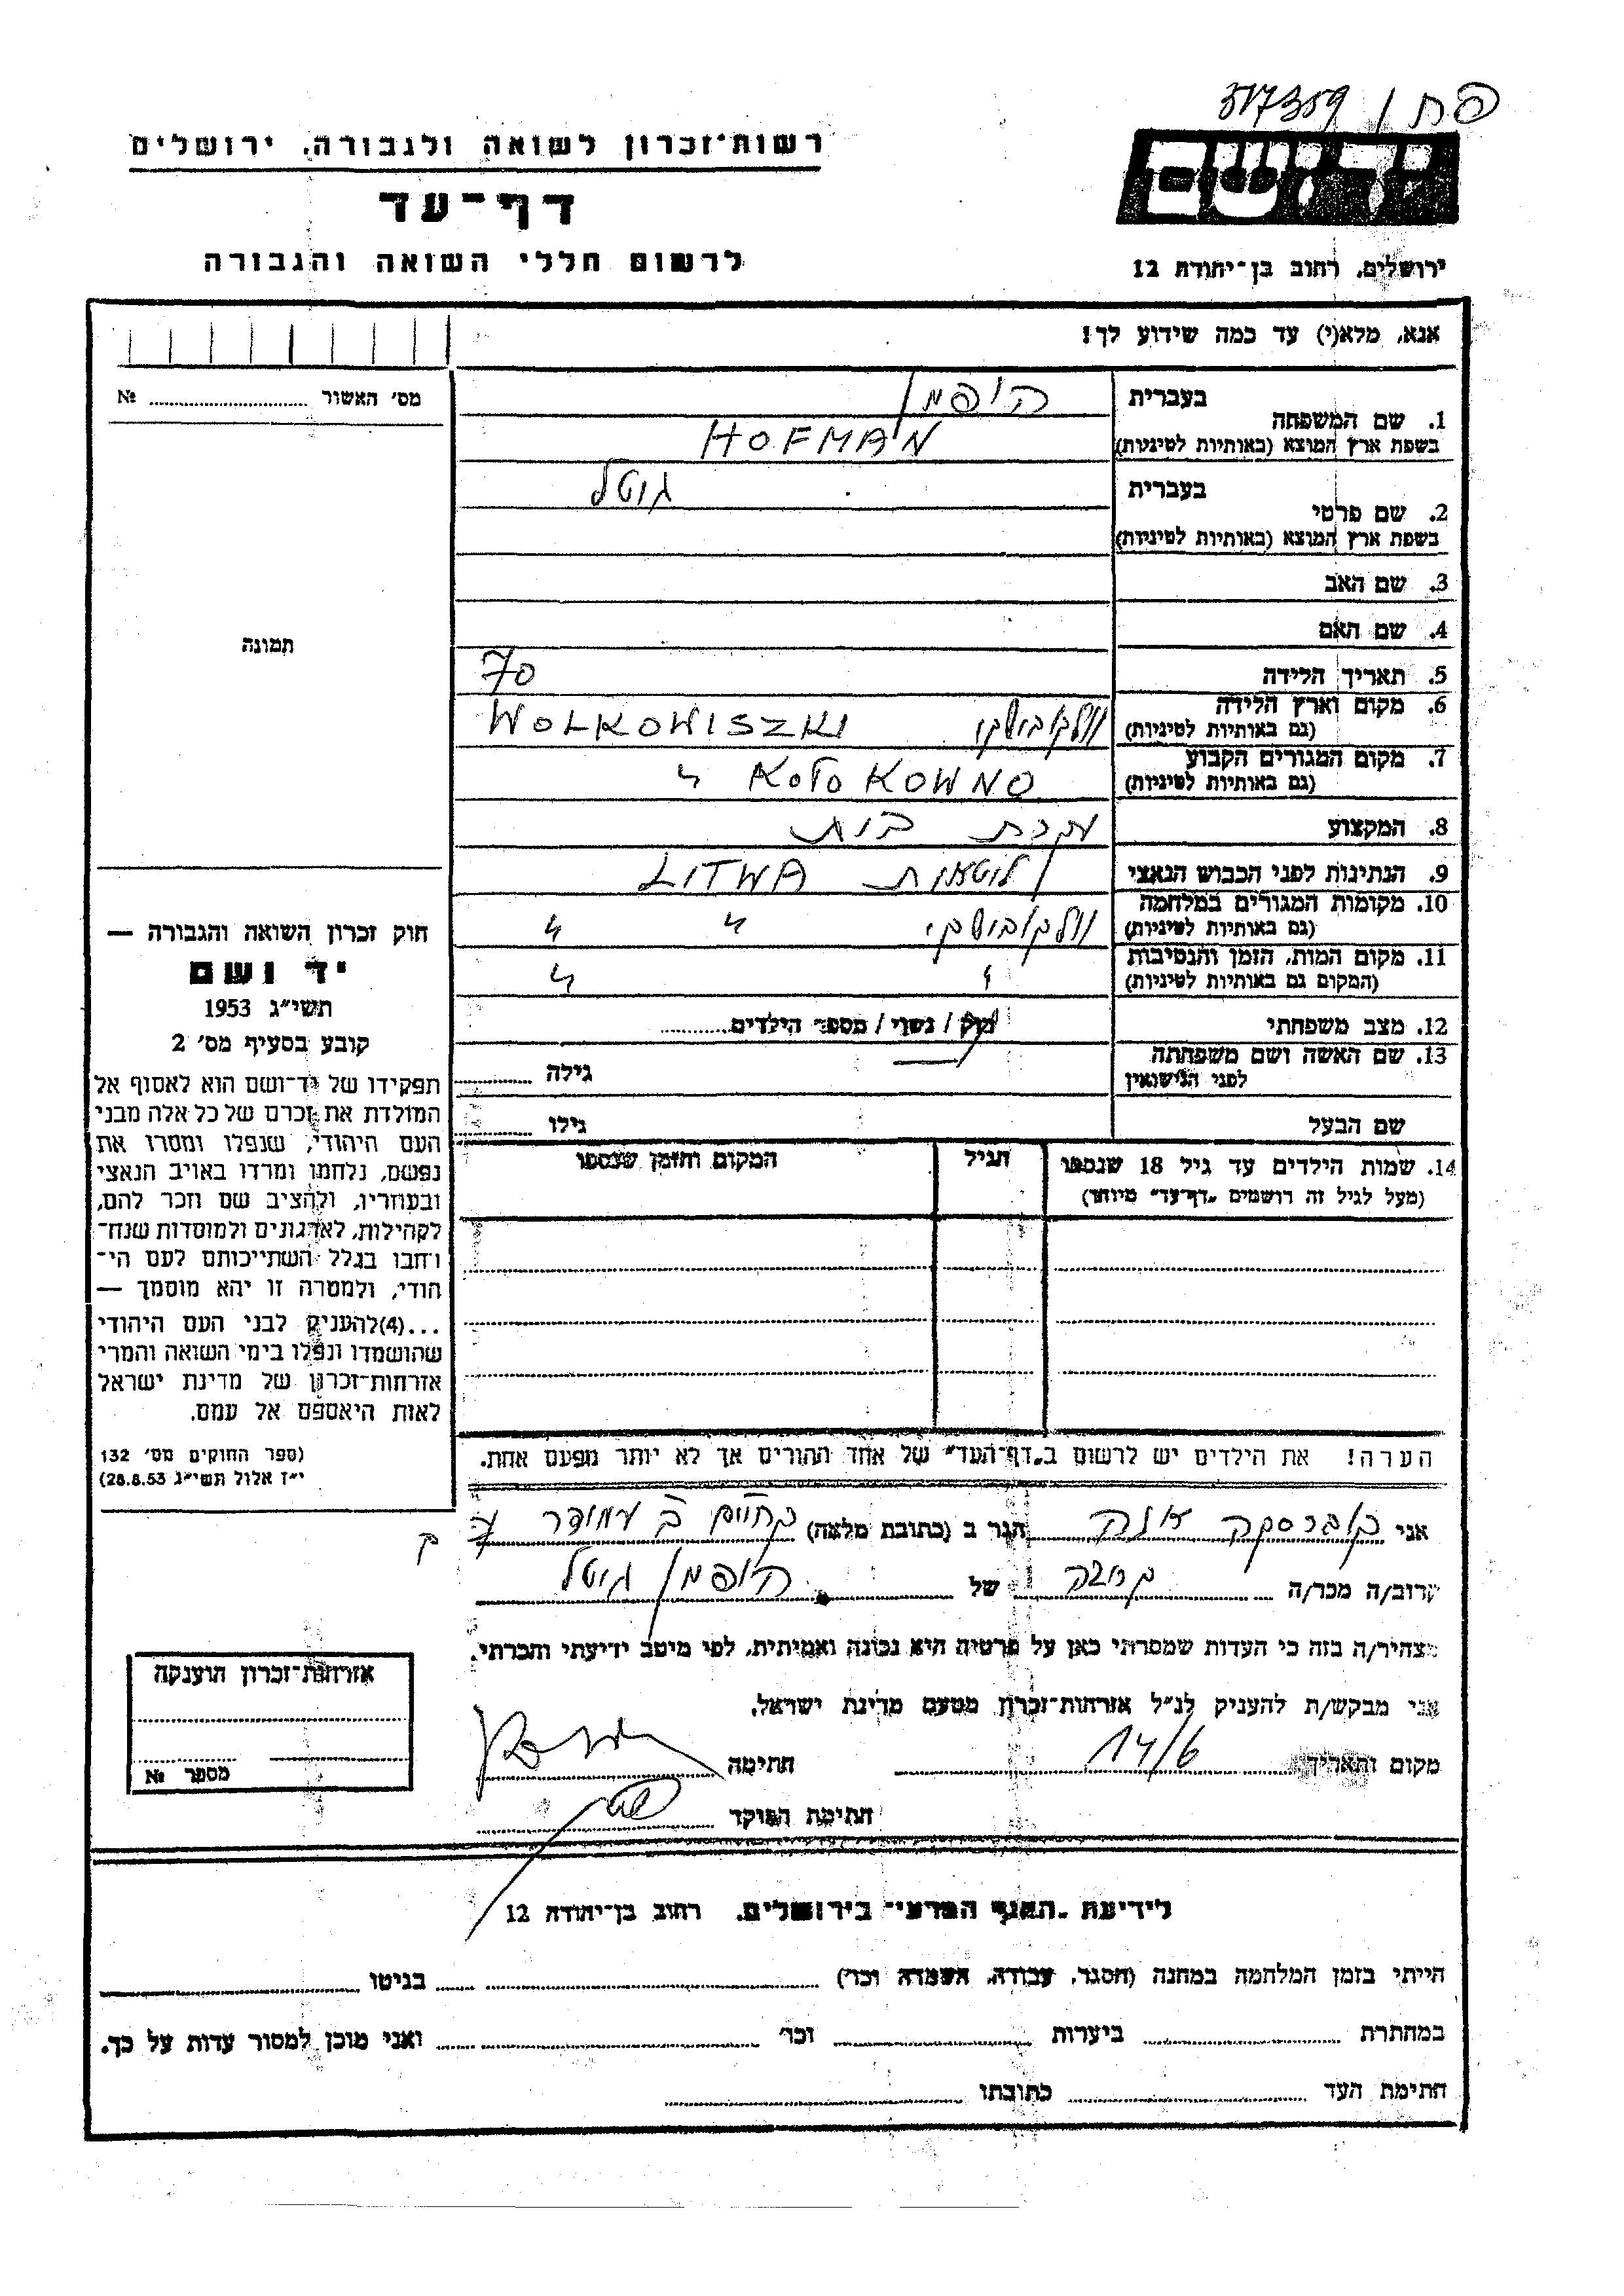 פתח / 317359
רשות־זכרון לשואה ולגבורה, ירושלים
דף־עד
לרשום חללי השואה והגבורה
ידושם
ירושלים, רחוב בן־יהודה 12
אנא, מלא(י) עד כמה שידוע לך!
מס' האשור № 
1. שם המשפחה
בעברית הופמן
בשפת ארץ המוצא (באותיות לטיניות) HOFMAN
2. שם פרטי
בעברית גוטל
בשפת ארץ המוצא (באותיות לטיניות)
3. שם האב
4. שם האם
תמונה
5. תאריך הלידה 70
6. מקום וארץ הלידה
(גם באותיות לטיניות) WOLKOWISZKI
7. מקום המגורים הקבוע
(גם באותיות לטיניות) KOWNO
8. המקצוע עקרת בית
9. הנתינות לפני הכבוש הנאצי ליטאית LITWA
10. מקומות המגורים במלחמה
(גם באותיות לטיניות) " "
11. מקום המות, הזמן והנסיבות
(המקום גם באותיות לטיניות) " "
12. מצב משפחתי רוק / נשוי / מספר הילדים
13. שם האשה ושם משפחתה
לפני הנישואין גילה
שם הבעל גילו
14. שמות הילדים עד גיל 18 שנספו
(מעל לגיל זה רושמים „דף־עד" מיוחד)
הגיל
המקום והזמן שנספו
חוק זכרון השואה והגבורה —
יד ושם
תשי"ג 1953
קובע בסעיף מס' 2
תפקידו של יד־ושם הוא לאסוף אל
המולדת את זכרם של כל אלה מבני
העם היהודי, שנפלו ומסרו את
נפשם, נלחמו ומרדו באויב הנאצי
ובעוזריו, ולהציב שם וזכר להם,
לקהילות, לארגונים ולמוסדות שנח־
רבו בגלל השתייכותם לעם הי־
הודי, ולמטרה זו יהא מוסמך —
...(4)להעניק לבני העם היהודי
שהושמדו ונפלו בימי השואה והמרי
אזרחות־זכרון של מדינת ישראל
לאות היאספם אל עמם.
(ספר החוקים מס' 132
י"ז אלול תשי"ג 28.8.53)
הערה! את הילדים יש לרשום ב„דף־העד" של אחד ההורים אך לא יותר מפעם אחת.
אני הגר ב (כתובת מלאה)
קרוב/ה מכר/ה קרובה של הופמן גוטל
מצהיר/ה בזה כי העדות שמסרתי כאן על פרטיה היא נכונה ואמיתית, לפי מיטב ידיעתי והכרתי.
אני מבקש/ת להעניק לנ"ל אזרחות־זכרון מטעם מדינת ישראל.
מקום ותאריך 14/6 חתימה
חתימת הפוקד
אזרחות־זכרון הוענקה
מספר №
לידיעת „האגף המדעי" בירושלים, רחוב בן־יהודה 12
הייתי בזמן המלחמה במחנה (הסגר, עבודה, השמדה וכו') בגיטו
במחתרת ביערות וכו' ואני מוכן למסור עדות על כך.
חתימת העד כתובתו